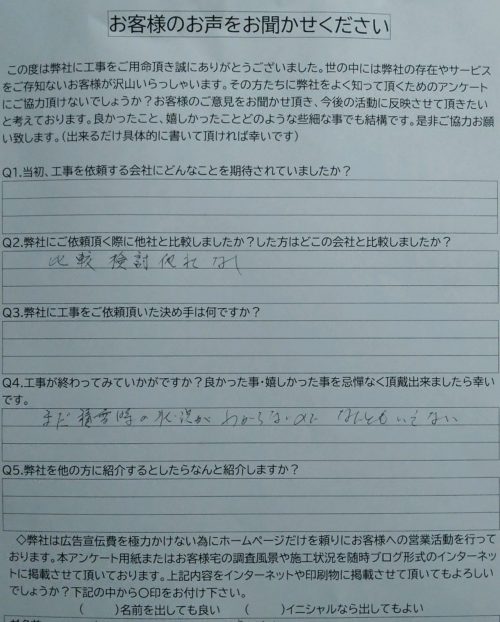 お客様のお声をお聞かせください
この度は弊社に工事をご用命頂き誠にありがとうございました。世の中には弊社の存在やサービス
をご存知ないお客様が沢山いらっしゃいます。その方たちに弊社をよく知って頂くためのアンケート
にご協力頂けないでしょうか?お客様のご意見をお聞かせ頂き、今後の活動に反映させて頂きたい
と考えております。良かったこと、嬉しかったことどのような些細な事でも結構です。是非ご協力お願
い致します。(出来るだけ具体的に書いて頂ければ幸いです)
Q1.当初、工事を依頼する会社にどんなことを期待されていましたか?
Q2.弊社にご依頼頂く際に他社と比較しましたか?した方はどこの会社と比較しましたか?
比較検討他社なし
Q3.弊社に工事をご依頼頂いた決め手は何ですか?
Q4.工事が終わってみていかがですか?良かった事・嬉しかった事を忌憚なく頂戴出来ましたら幸い
です。
まだ積雪時の状況がわからないのでなんともいえない
Q5.弊社を他の方に紹介するとしたらなんと紹介しますか?
◇弊社は広告宣伝費を極力かけない為にホームページだけを頼りにお客様への営業活動を行って
おります。本アンケート用紙またはお客様宅の調査風景や施工状況を随時ブログ形式のインターネッ
トに掲載させて頂いております。上記内容をインターネットや印刷物に掲載させて頂いてもよろしい
でしょうか?下記の中から〇印をお付け下さい。
( )名前を出しても良い ( )イニシャルなら出してもよい